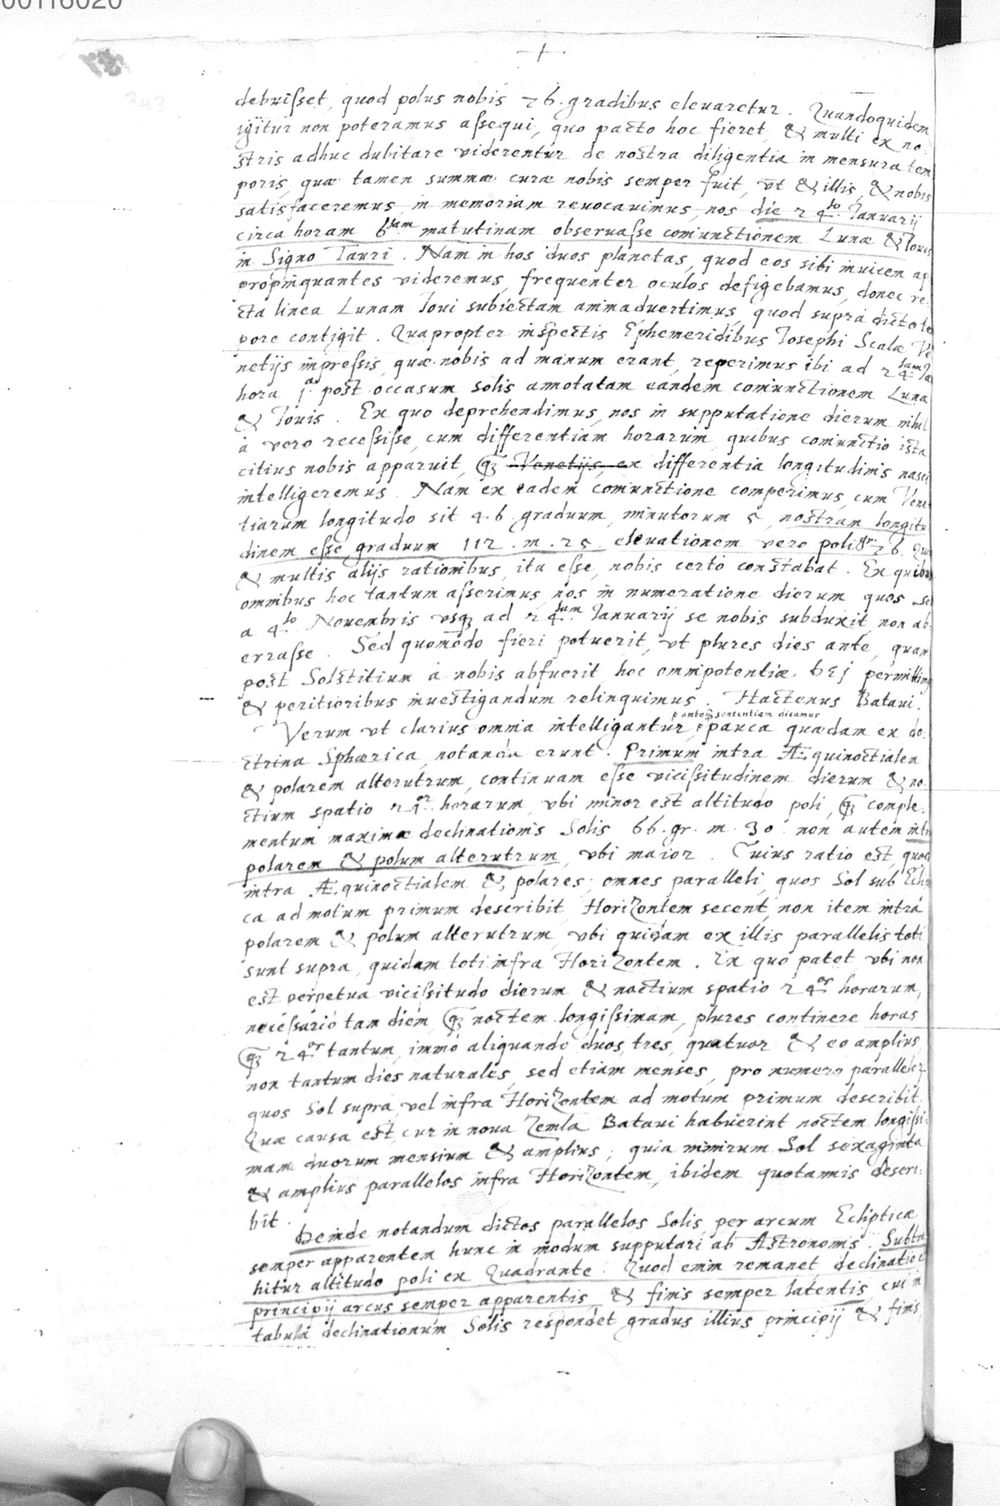 00116020
debuisset, quod polus nobis 76. gradibus eleuaretur. Quandoquidem
igitur non poteramus assequi, quo pacto hoc fieret, & multi ex no-
stris adhuc dubitare viderentur de nostra diligentia in mensura tem
poris, quæ tamen summæ curæ nobis semper fuit, vt & illis, & nobis
satisfaceremus in memoriam reuocauimus, nos die 24.to Ianuarij
circa horam 6tam matutinam obseruasse coniunctionem Lunæ & Iouis
in Signo Tauri. Nam in hos duos planetas, quod eos sibi inuicem ap
propinquantes videremus, frequenter oculos defigebamus, donec re-
cta linea Lunam Ioui subiectam animaduertimus, quod supra dicto te
pore contigit. Quapropter inspectis Ephemeridibus Iosephi Scalæ Ve
netijs impressis, quæ nobis ad manum erant, reperimus ibi ad 24.tam Ia
hora 1.a post occasum solis annotatam eandem coniunctionem Lunæ
& Iouis. Ex quo deprehendimus, nos in supputatione dierum nihil
à vero recessisse, cum differentiam horarum, quibus coniunctio ista
citius nobis apparuit, Venetijs, ex differentia longitudinis nasci
intelligeremus. Nam ex eadem coniunctione comperimus, cum Vene
tiarum longitudo sit 46. graduum, minutorum 5, nostram longitu
dinem esse graduum 112. m. 25 eleuationem vero poli gr. 76. Qui
& multis alijs rationibus, ita esse, nobis certo constabat. Ex quibus
omnibus hoc tantum asserimus, nos in numeratione dierum quos sol
a 4.to Nouembris vsq ad 24.tum Ianuarij se nobis subduxit, non ab-
errasse. Sed quomodo fieri potuerit, vt plures dies ante, quam
post Solstitium à nobis abfuerit, hoc omnipotentiæ DEI permittimus
& peritioribus inuestigandum relinquimus. Hactenus Bataui.
ante sententiam dicamus
Verum vt clarius omnia intelligantur, pauca quædam ex do-
ctrina Sphærica, notanda erunt. Primum intra Æquinoctialem
& polarem alterutrum, continuam esse vicissitudinem dierum & no-
ctium spatio 24.or horarum, vbi minor est altitudo poli, comple-
mentum maximæ declinationis Solis 66. gr. m. 30. non autem intra
polarem & polum alterutrum, vbi maior. Cuius ratio est, quod
intra Æquinoctialem & polares, omnes paralleli, quos Sol sub Ecli
ca ad motum primum describit Horizontem secent, non item intra
polarem & polum alterutrum, vbi quidam ex illis parallelis toti
sunt supra, quidam toti infra Horizontem. Ex quo patet vbi non
est perpetua vicissitudo dierum & noctium spatio 24.or horarum,
necessario tam diem noctem longissimam, plures continere horas
24.or tantum, immo aliquando duos, tres, quatuor & eo amplius
non tantum dies naturales, sed etiam menses, pro numero parallelor
quos Sol supra vel infra Horizontem ad motum primum describit.
Quæ causa est cur in noua Zemla Bataui habuerint noctem longissi-
mam duorum mensium & amplius; quia nimirum Sol sexaginta
& amplius parallelos infra Horizontem, ibidem quotannis descri-
bit.
Deinde notandum dictos parallelos Solis, per arcum Eclipticæ
semper apparentem hunc in modum supputari ab Astronomis. Subtra
hitur altitudo poli ex Quadrante. Quod enim remanet declinatio
principij arcus semper apparentis & finis semper latentis, cui in
tabula declinationum Solis respondet gradus illius principij & finis